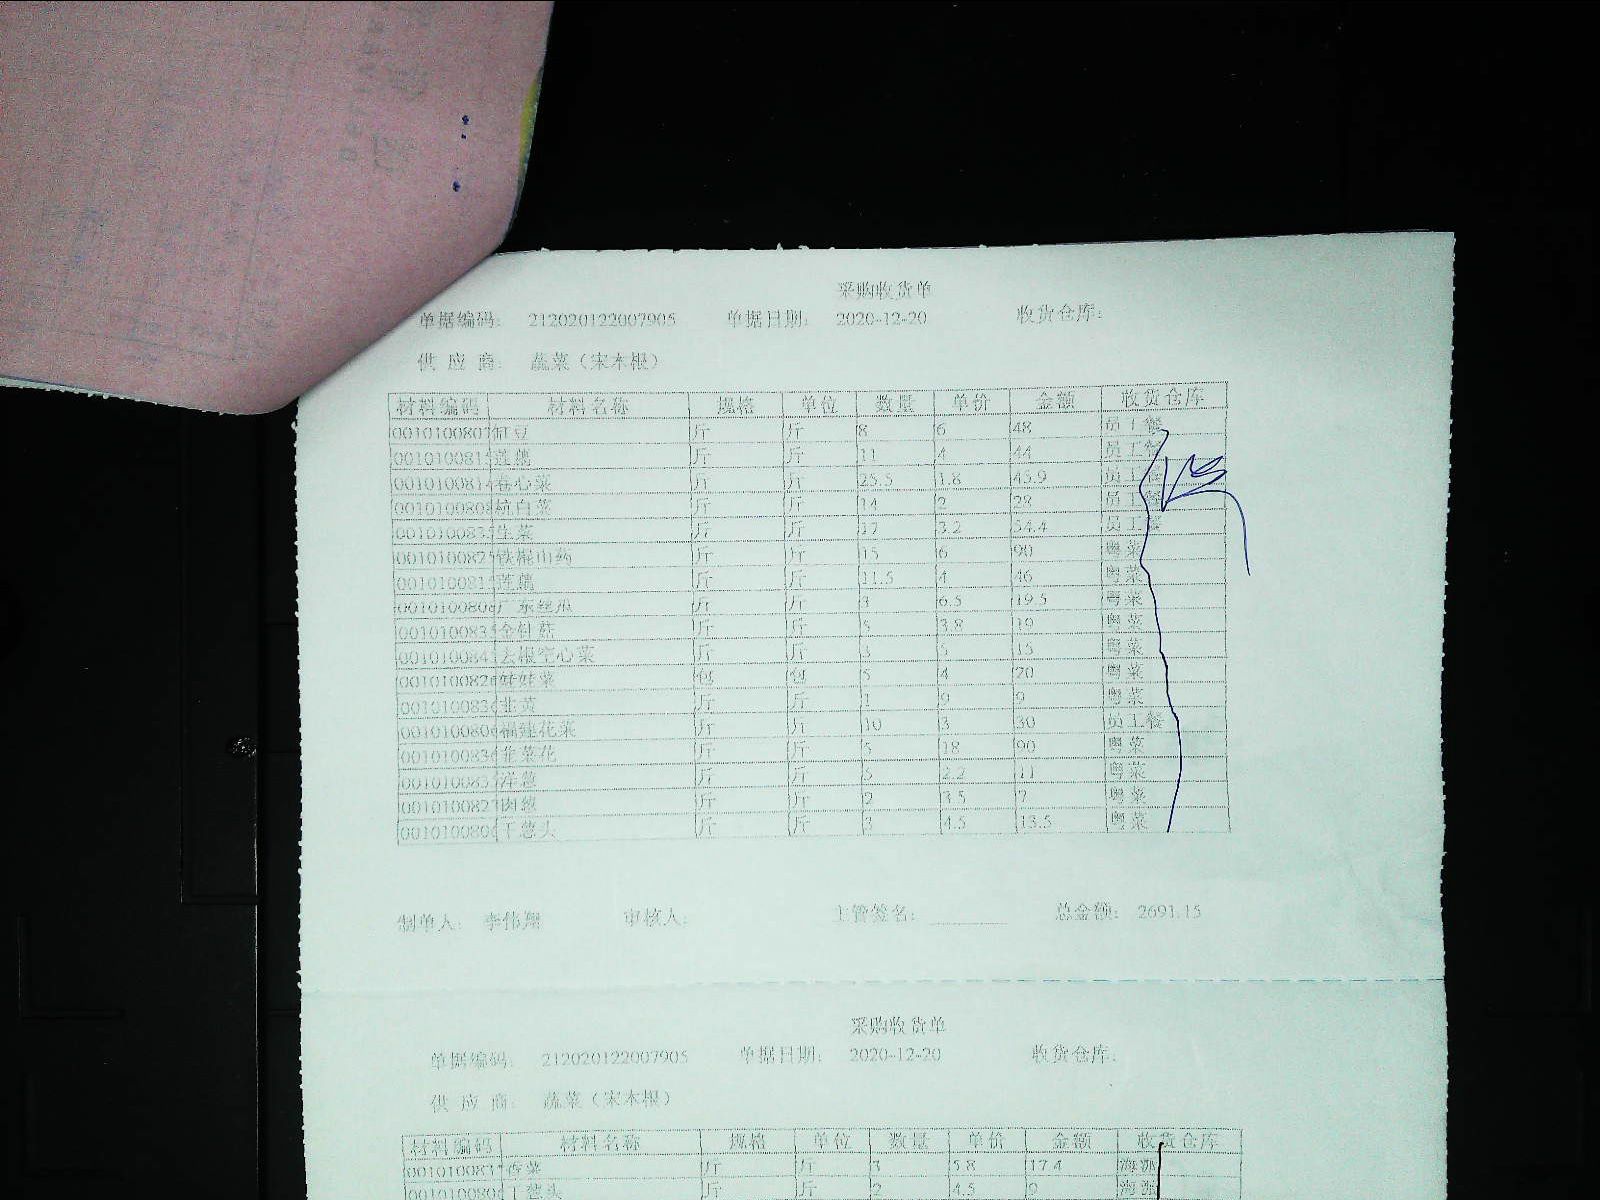 采购收货单
单据编码： 212020122007905 单据日期： 2020-12-20 收货仓库：
供 应 商： 蔬菜（宋本根）
材料编码 材料名称 规格 单位 数量 单价 金额 收货仓库
豇豆 斤 斤 8 6 48 员工餐
莲藕 斤 斤 11 4 44 员工餐
卷心菜 斤 斤 25.5 1.8 45.9 员工餐
杭白菜 斤 斤 14 2 28 员工餐
生菜 斤 斤 17 3.2 54.4 员工餐
铁棍山药 斤 斤 15 6 90 粤菜
莲藕 斤 斤 11.5 4 46 粤菜
广东丝瓜 斤 斤 3 6.5 19.5 粤菜
金针菇 斤 斤 5 3.8 19 粤菜
去根空心菜 斤 斤 3 5 15 粤菜
娃娃菜 包 包 5 4 20 粤菜
韭黄 斤 斤 1 9 9 粤菜
福建花菜 斤 斤 10 3 30 员工餐
韭菜花 斤 斤 5 18 90 粤菜
洋葱 斤 斤 5 2.2 11 粤菜
斤 斤 2 3.5 7 粤菜
干葱头 斤 斤 3 4.5 13.5 粤菜
制单人： 李伟翔 审核人： 主管签名： 总金额： 2691.15
采购收货单
单据编码： 212020122007905 单据日期： 2020-12-20 收货仓库：
供 应 商： 蔬菜（宋本根）
材料编码 材料名称 规格 单位 数量 单价 金额 收货仓库
香菜 斤 斤 3 5.8 17.4 海派
干葱头 斤 斤 2 4.5 9 海派